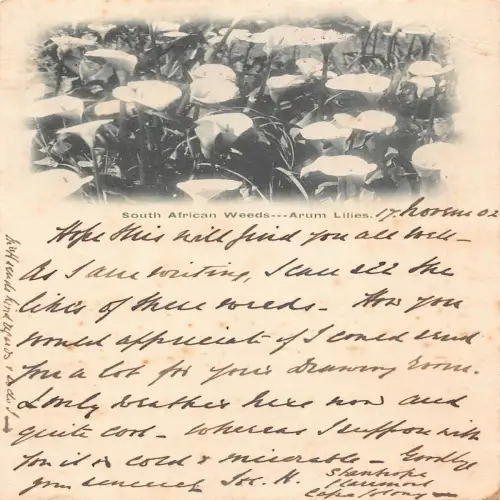 South African Weeds---Arum Lilies.
17. Novem 02
Hope this will find you all well -
As I am writing, I can see the
likes of these weeds - How you
would appreciate if I could send
you a lot for your drawing room.
Lovely weather here now and
quite cool - whereas I suppose with
you it is cold & miserable - Goodbye
yours sincerely Jos. H.
Stanhope
Claremont
Cape Colony -
sends kind regards & so do I -